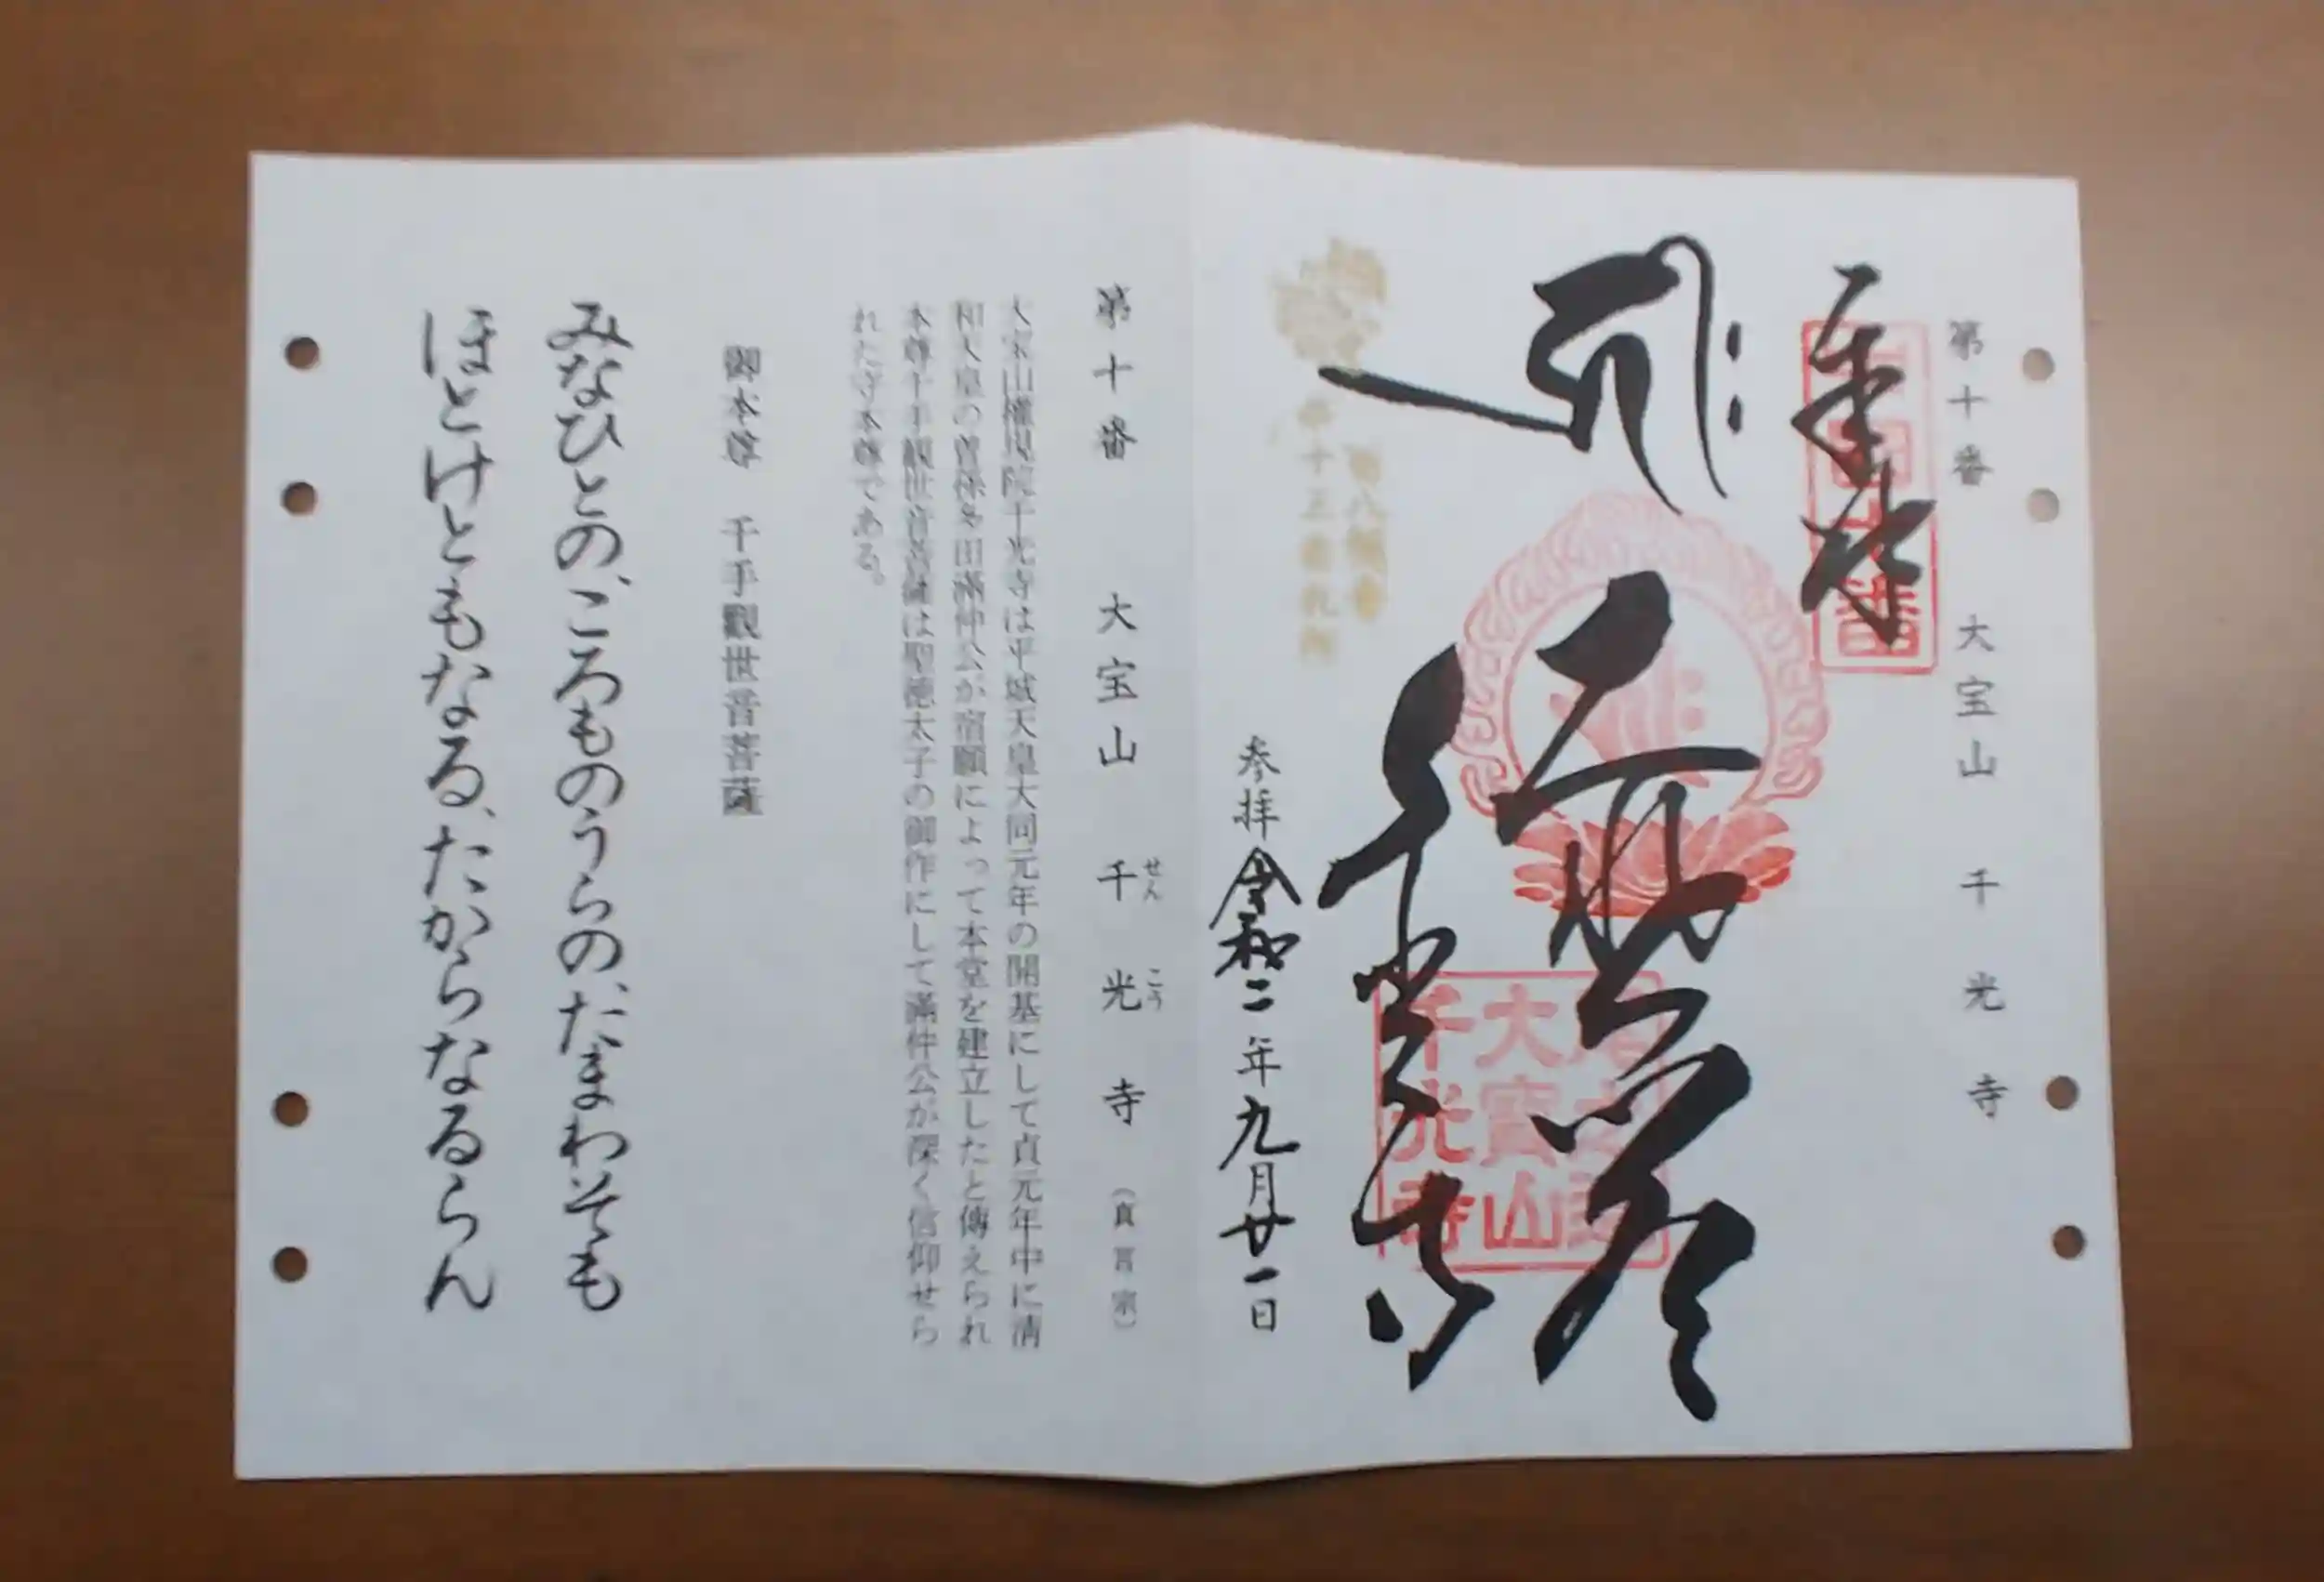 第十番 大宝山 千光寺
奉拝
大慈殿
千光寺
大寶山
千光寺
参拝 令和二年九月廿一日
第十番 大宝山 千光寺 (真言宗)
せん こう
大宝山権現院千光寺は平城天皇大同元年の開基にして貞元年中に清
和天皇の曽孫多田満仲公が宿願によって本堂を建立したと傳えられ
本尊千手観世音菩薩は聖徳太子の御作にして満仲公が深く信仰せら
れた守本尊である。
御本尊 千手觀世音菩薩
みなひとの、ころものうらの、たまわそも
ほとけともなる、たからなるらん